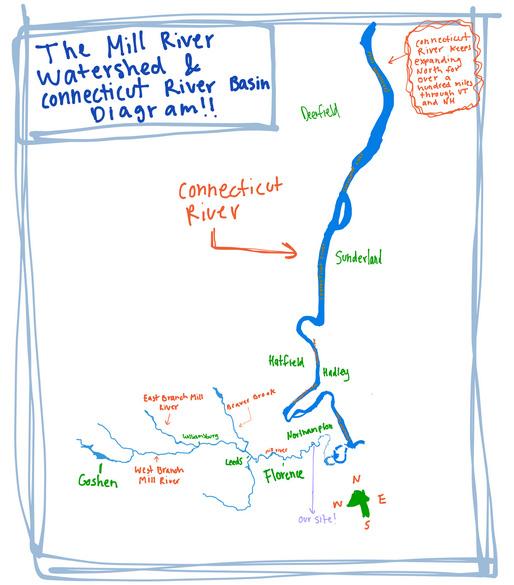 The Mill River
Watershed &
Connecticut River Basin
Diagram!!
Connecticut
River keeps
expanding
North for
over a
hundred miles
through VT
and NH
Deerfield
Connecticut
River
Sunderland
Hatfield
Hadley
East Branch Mill
River
Beaver Brook
Williamsburg
Northampton
Leeds
Mill River
Florence
Goshen
West Branch
Mill River
Our Site!
N
W
E
S